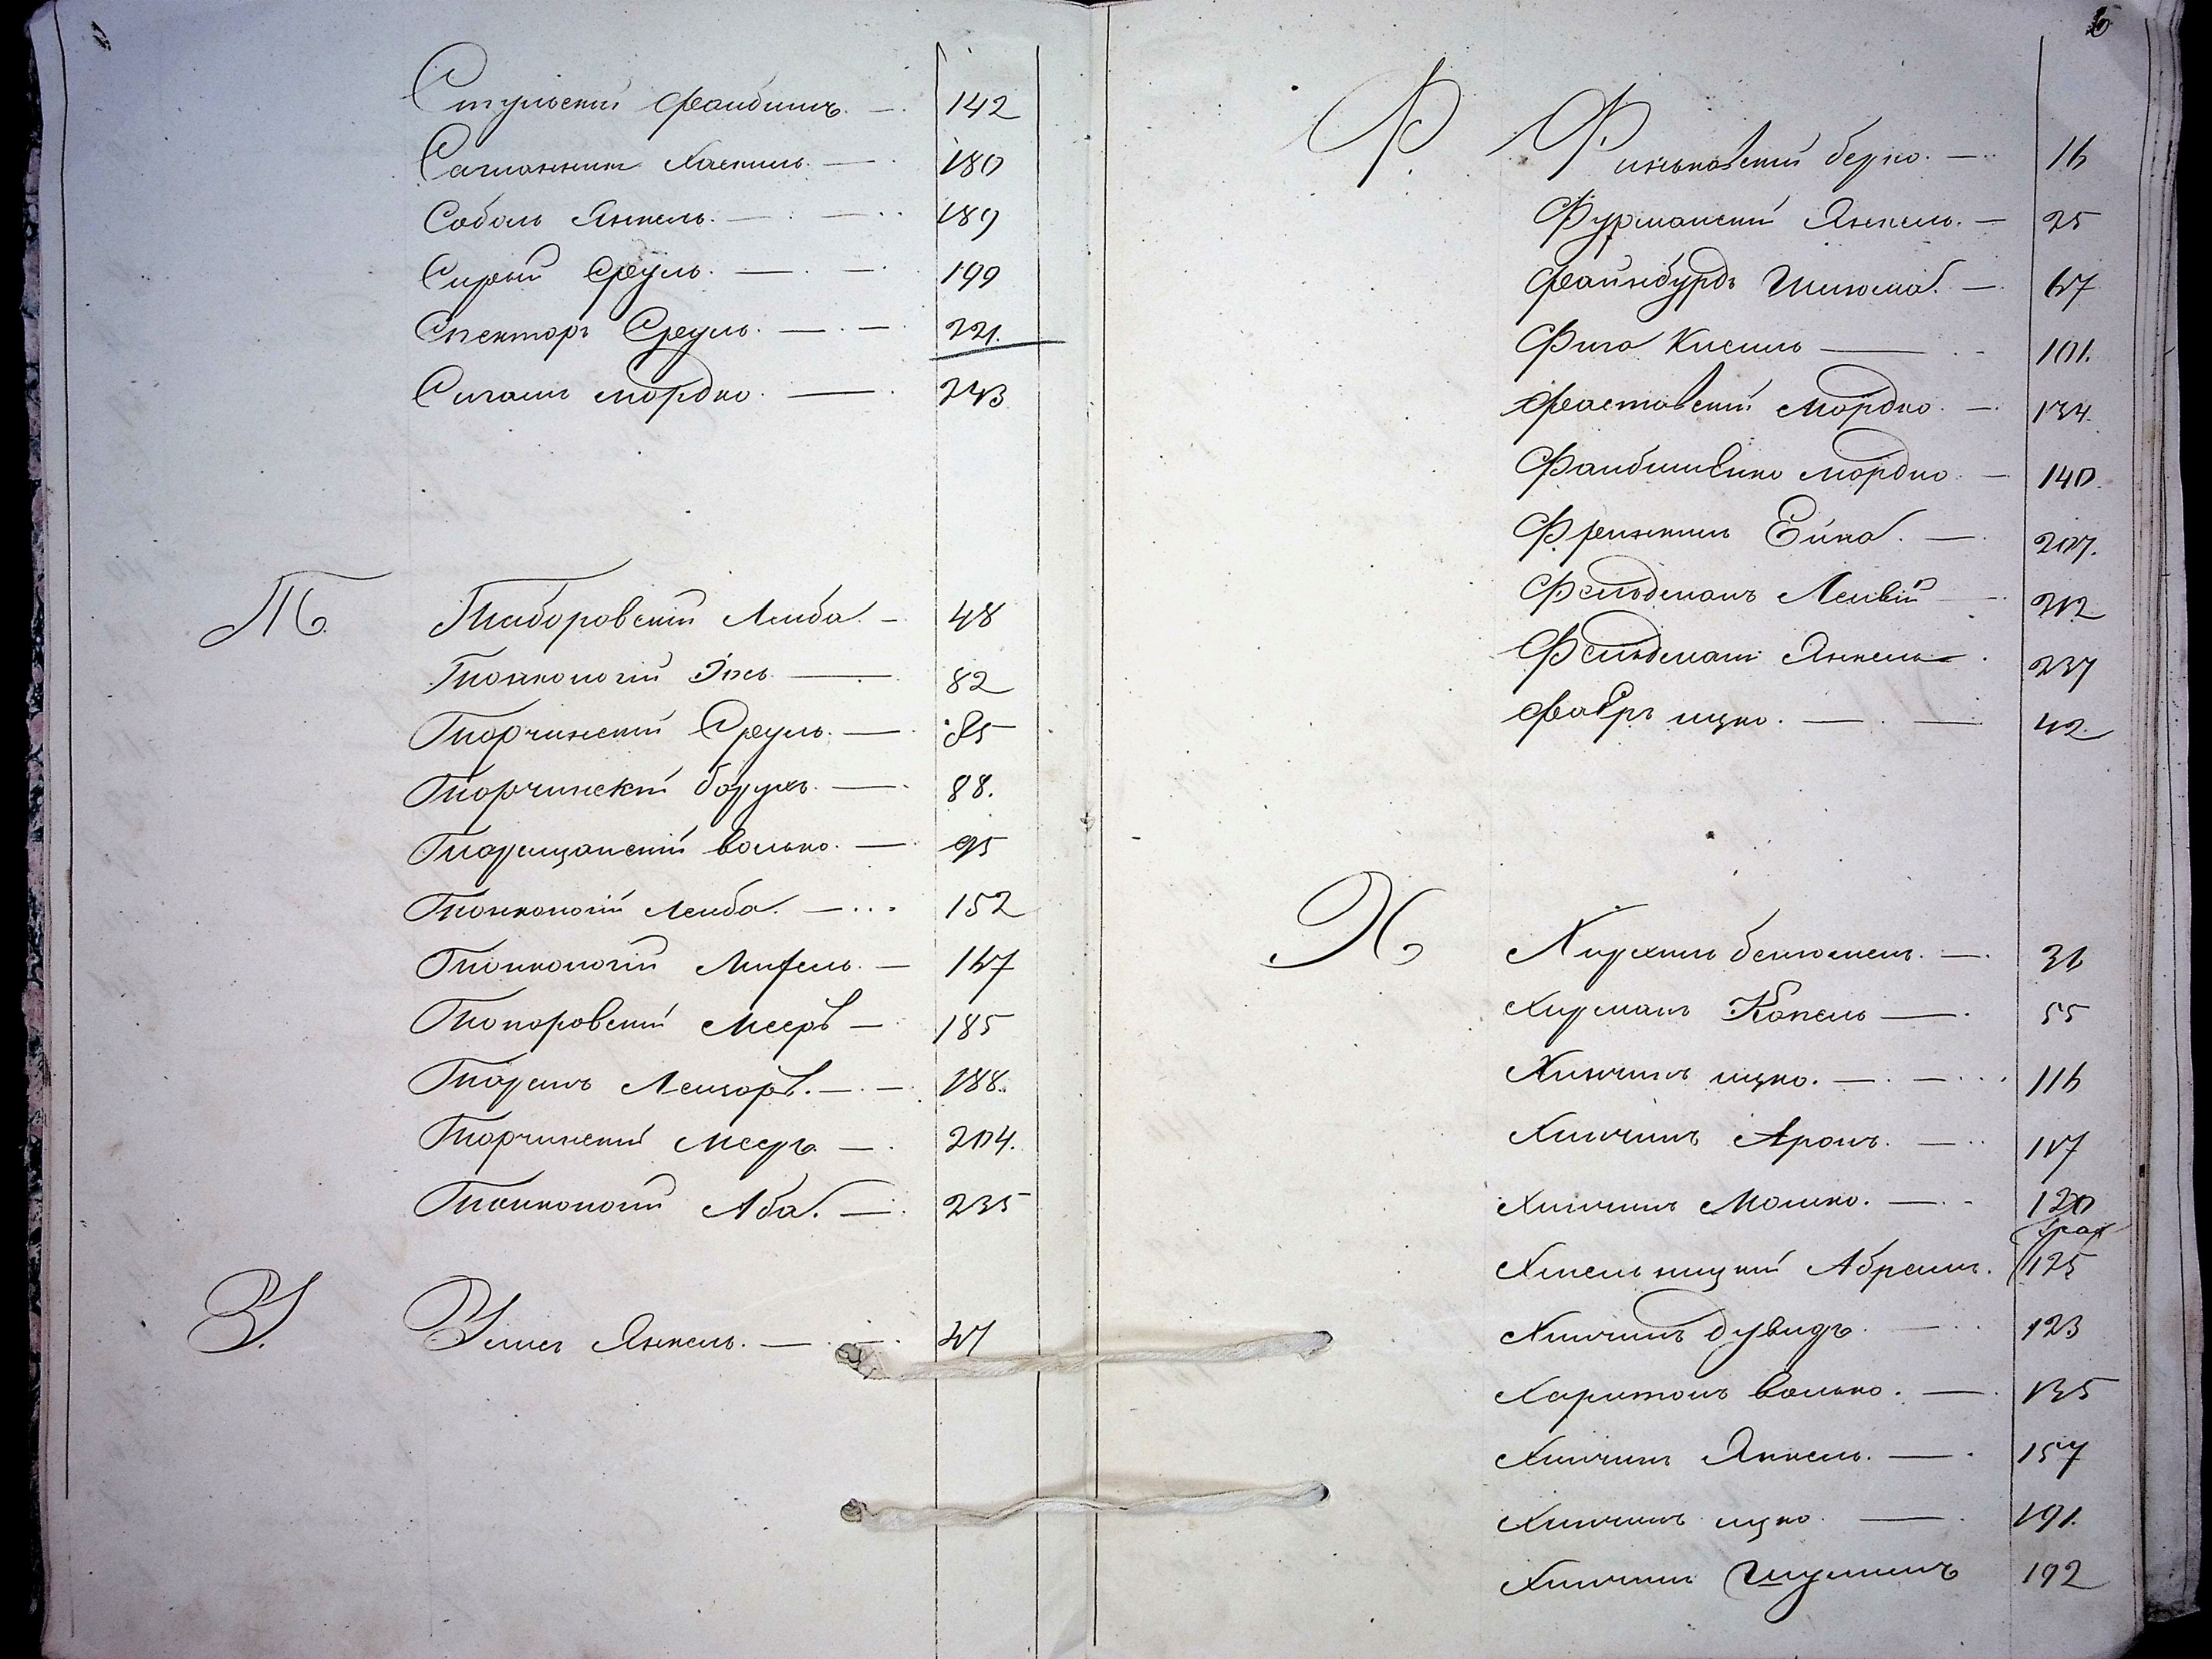 Стульский Файбишъ. — 142
Хаскиль — 180
Соболь Янкель. — 189
Сирый Сруль. — 199
Спекторъ Сруль. — 221.
Сигалъ Мордко. — 243
Т.
Таборовскій Лейба. — 48
Тонконогій Іось — 82
Торчинскій Сруль. — 85
Торчинскій Борухъ. — 88.
Таращанскій Волько. — 95
Тонконогій Лейба. — 152
Тонконогій — 167
Топоровскій Мееръ — 185
Лейзоръ. — 188.
Торчинскій Мееръ. — 204.
Тонконогій Аба. — 235
У.
Янкель. —
Ф
Финьковскій Берко. — 16
Фурманскій Янкель. — 25
Файнбурдъ Шлиома. — 67
Фига Кисиль — 101.
Фастовскій Мордко. — 134.
Мордко — 140.
Френкиль — 207.
Фельдманъ Лейвій — 212
Фельдманъ Янкель — 237
Ицко. — 42.
Х
Беньюменъ. — 36
Хирманъ Копель — 55
Хинчинъ Ицко. — 116
Хинчинъ Аронъ. — 117
Хинчинъ Мошко. — 120
Хмельницкий Абрамъ. 125
Хинчинъ Дувидъ. — 123
Харитонъ Волько. — 135
Хинчинъ Янкель. — 157
Хинчинъ Ицко. — 191.
Хинчинъ 192